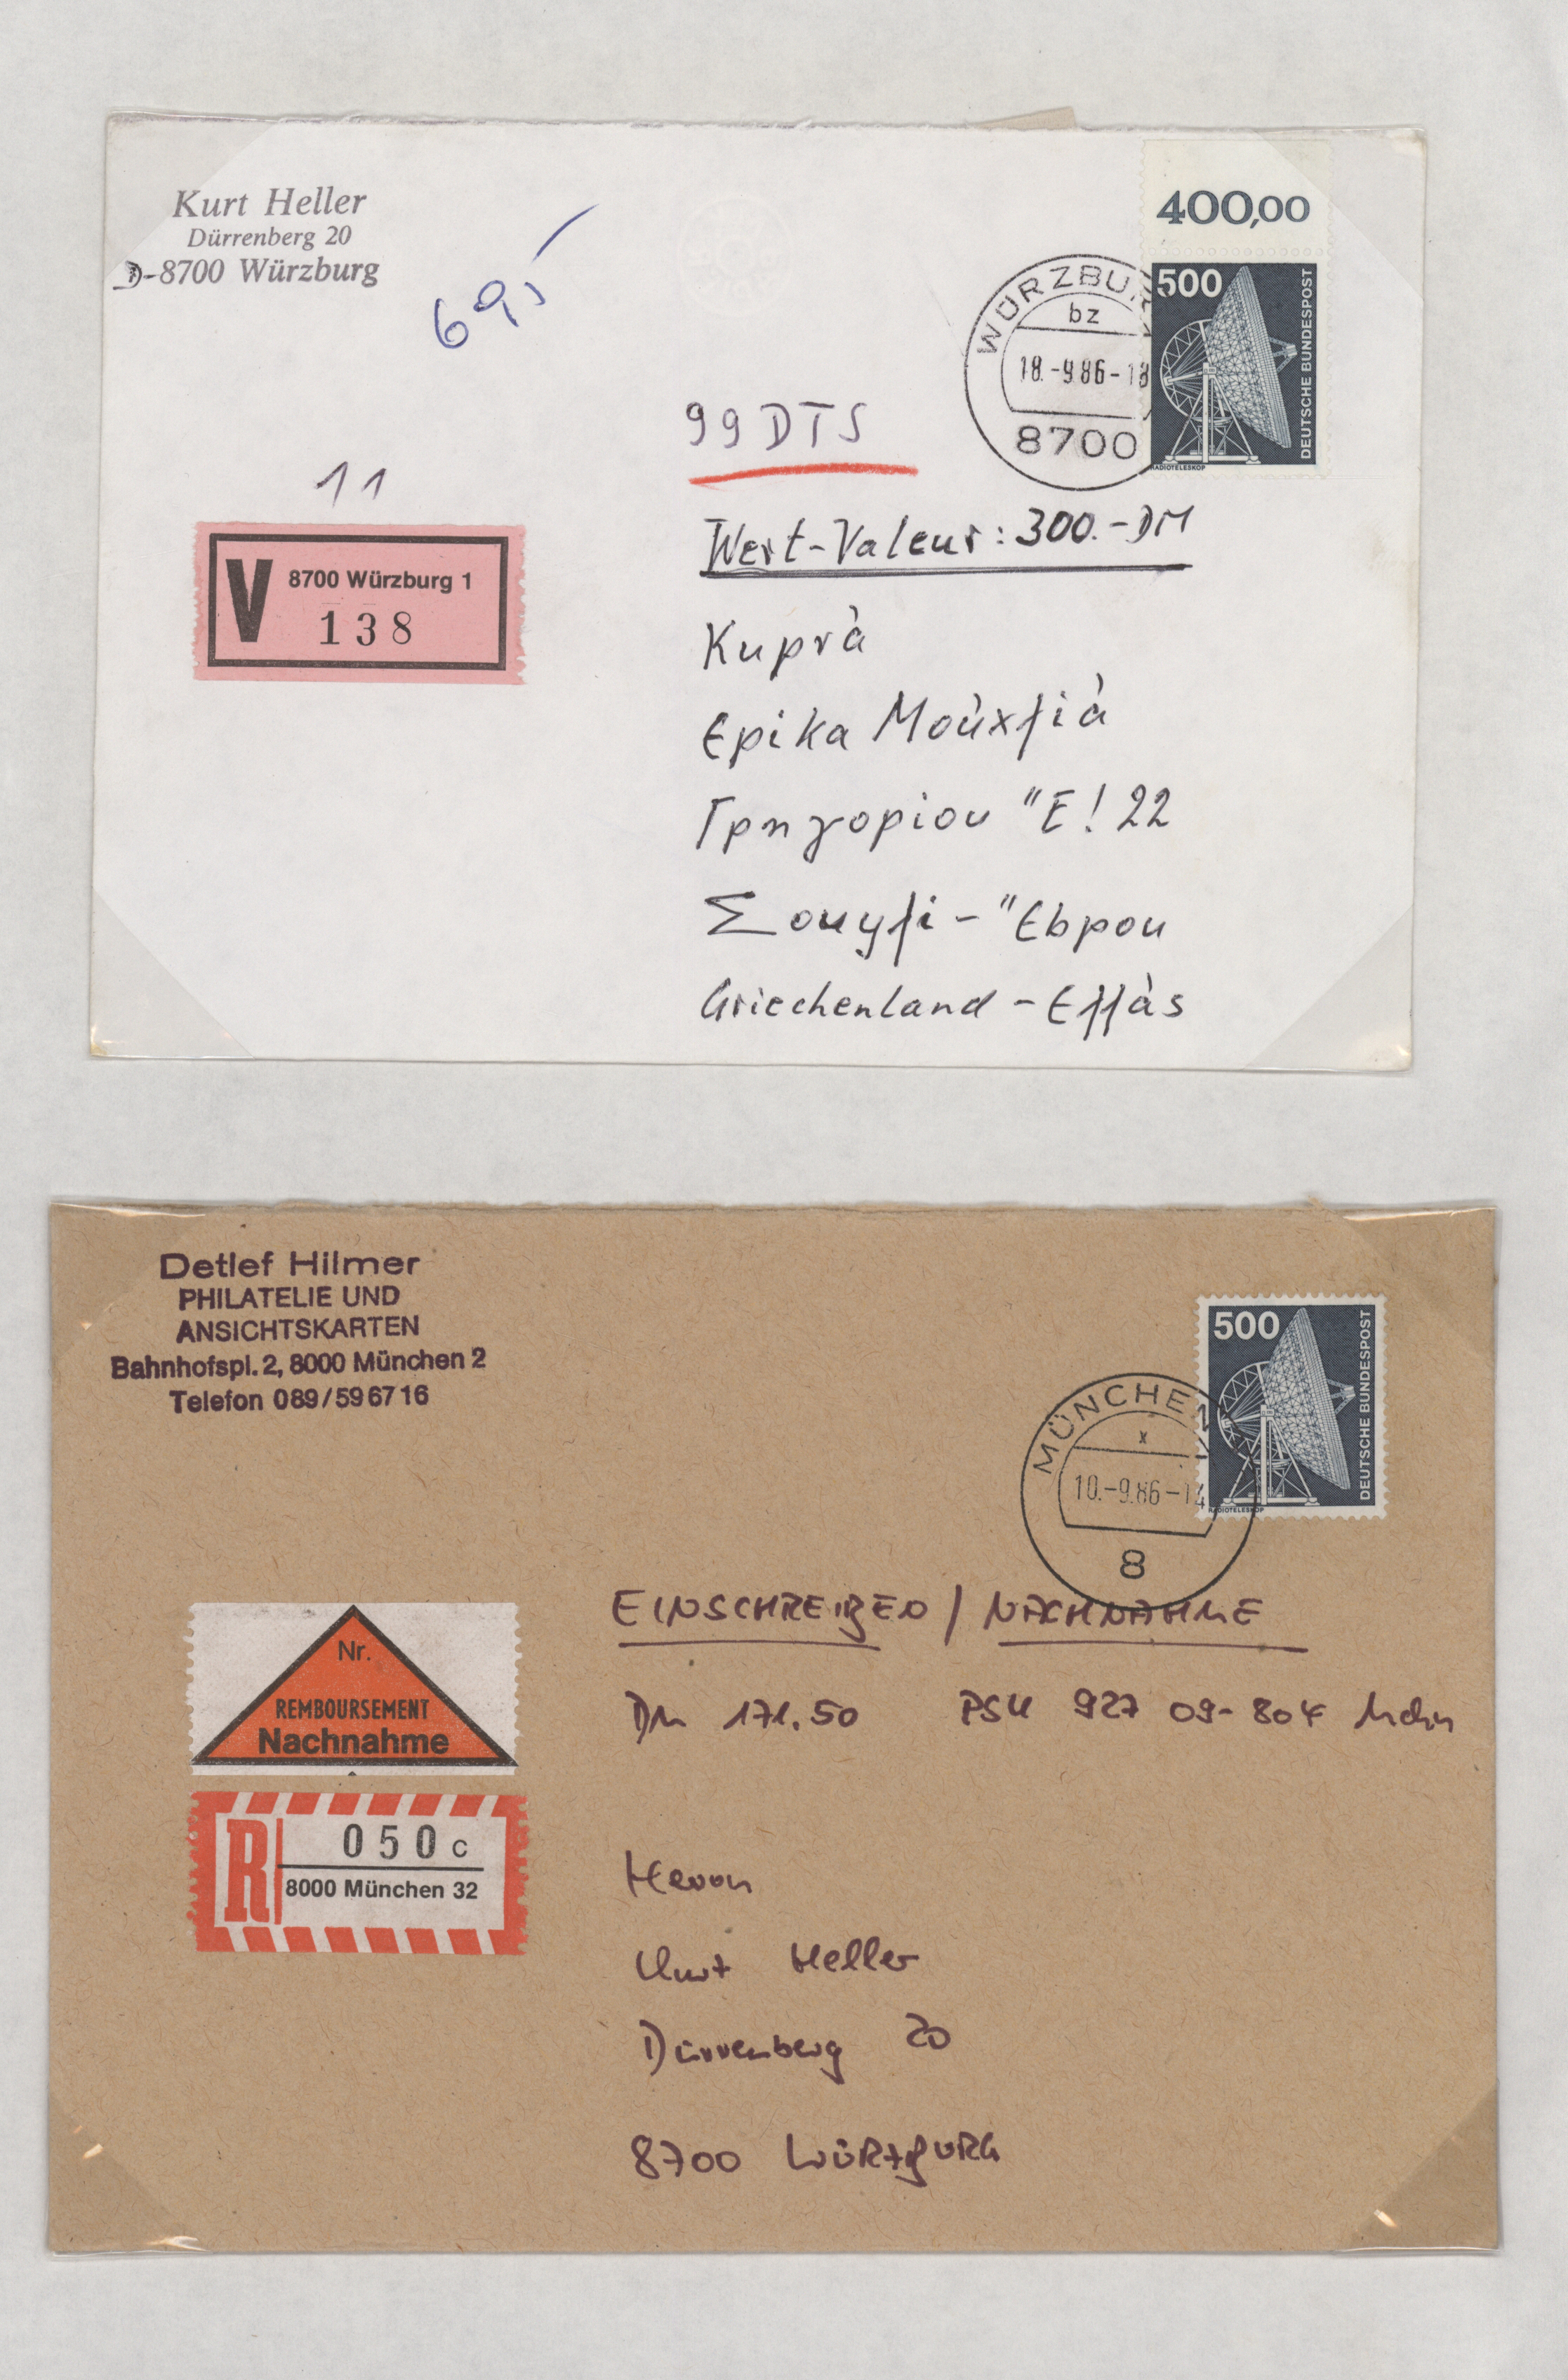 Kurt Heller
Dürrenberg 20
D-8700 Würzburg
69,5
400,00
500
DEUTSCHE BUNDESPOST
RADIOTELESKOP
WÜRZBUR
bz
18.-9.86-18
8700
99 DTS
11
V 8700 Würzburg 1
138
Wert-Valeur: 300.-DM
Κυρὰ
Ερικα
Γρηγοριου "Ε! 22
"Εbρου
Griechenland - Ελλὰs
Detlef Hilmer
PHILATELIE UND
ANSICHTSKARTEN
Bahnhofspl. 2, 8000 München 2
Telefon 089/596716
500
DEUTSCHE BUNDESPOST
RADIOTELESKOP
MÜNCHEN
x
10.-9.86-14
8
EINSCHREIBEN / NACHNAHME
DM 171.50 PSK 927 09-804 Mchn
Nr.
REMBOURSEMENT
Nachnahme
R 050 c
8000 München 32
Herrn
Kurt Heller
Dürrenberg 20
8700 WÜRZBURG